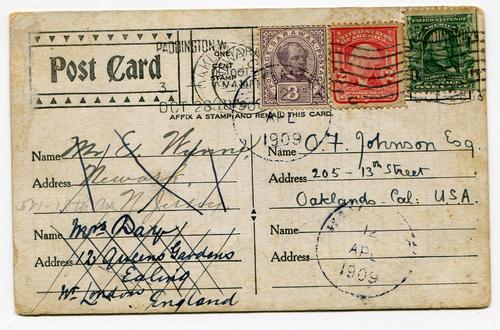 PADDINGTON.W.
ONE
CENT
STAMP
Post Card
OCT 28
SARAWAK
3
AFFIX A STAMP AND REMAIL THIS CARD.
Name Mr E Wynne
Address Newark
N. Jersey
Name Mrs Day
Address 12 Queens Gardens
Ealing
W. London England
APL
1909
Name O. F. Johnson Esq.
Address 205 - 13th Street
Oaklands - Cal: U.S.A.
Name
Address
12
APL
1909